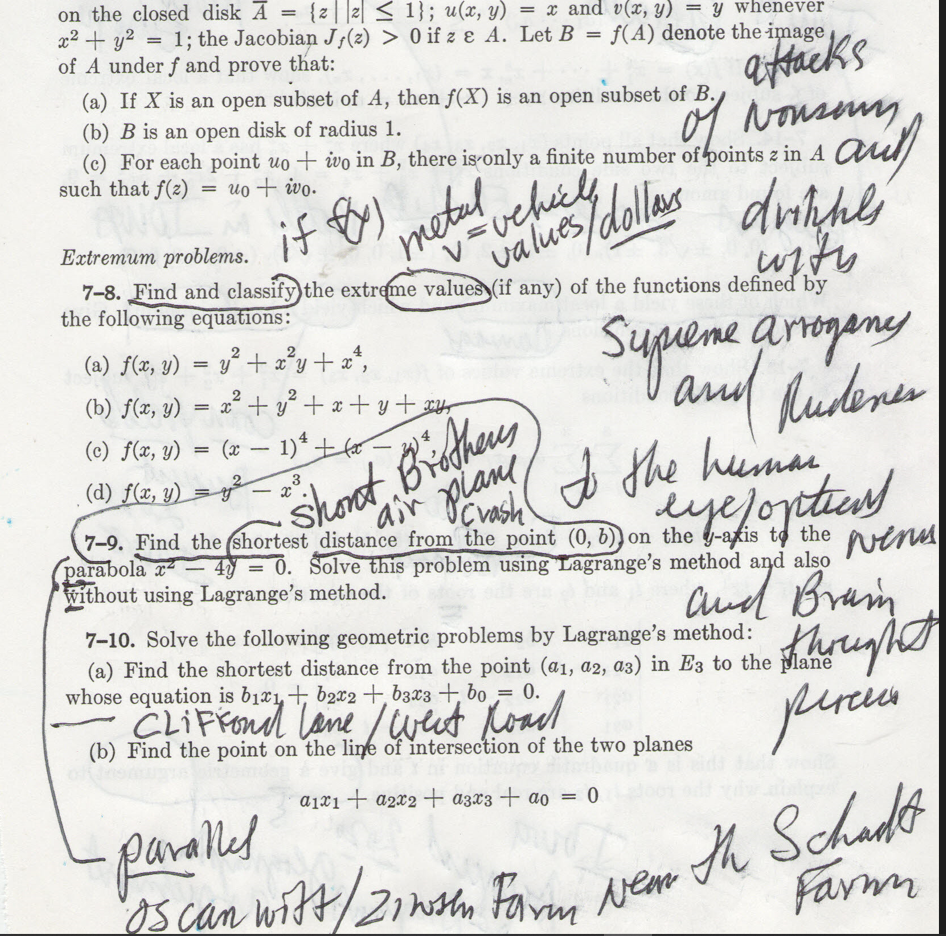 on the closed disk A̅ = {z | |z| ≤ 1}; u(x, y) = x and v(x, y) = y whenever
x² + y² = 1; the Jacobian J_f(z) > 0 if z ε A. Let B = f(A) denote the image
of A under f and prove that:
attacks
(a) If X is an open subset of A, then f(X) is an open subset of B.
of Nonsense
(b) B is an open disk of radius 1.
(c) For each point u₀ + iv₀ in B, there is only a finite number of points z in A
and
such that f(z) = u₀ + iv₀.
if f(x) metal v = vehicle values/dollars
dribbles
with
Extremum problems.
7–8. Find and classify the extreme values (if any) of the functions defined by
the following equations:
Supreme arrogance
(a) f(x, y) = y² + x²y + x⁴,
and Rudeness
(b) f(x, y) = x² + y² + x + y + xy,
(c) f(x, y) = (x − 1)⁴ + (x − y)⁴
Short Brothers
air plane
crash
to the human
(d) f(x, y) = y² − x³.
eye/optical
7–9. Find the shortest distance from the point (0, b) on the y-axis to the
nerves
parabola x² − 4y = 0. Solve this problem using Lagrange's method and also
without using Lagrange's method.
and Brain
7–10. Solve the following geometric problems by Lagrange's method:
thought
(a) Find the shortest distance from the point (a₁, a₂, a₃) in E₃ to the plane
whose equation is b₁x₁ + b₂x₂ + b₃x₃ + b₀ = 0.
process
Clifford Lane/West Road
(b) Find the point on the line of intersection of the two planes
a₁x₁ + a₂x₂ + a₃x₃ + a₀ = 0
parallel
Near Th Schadt
Farm
Oscan Witt/ Farm